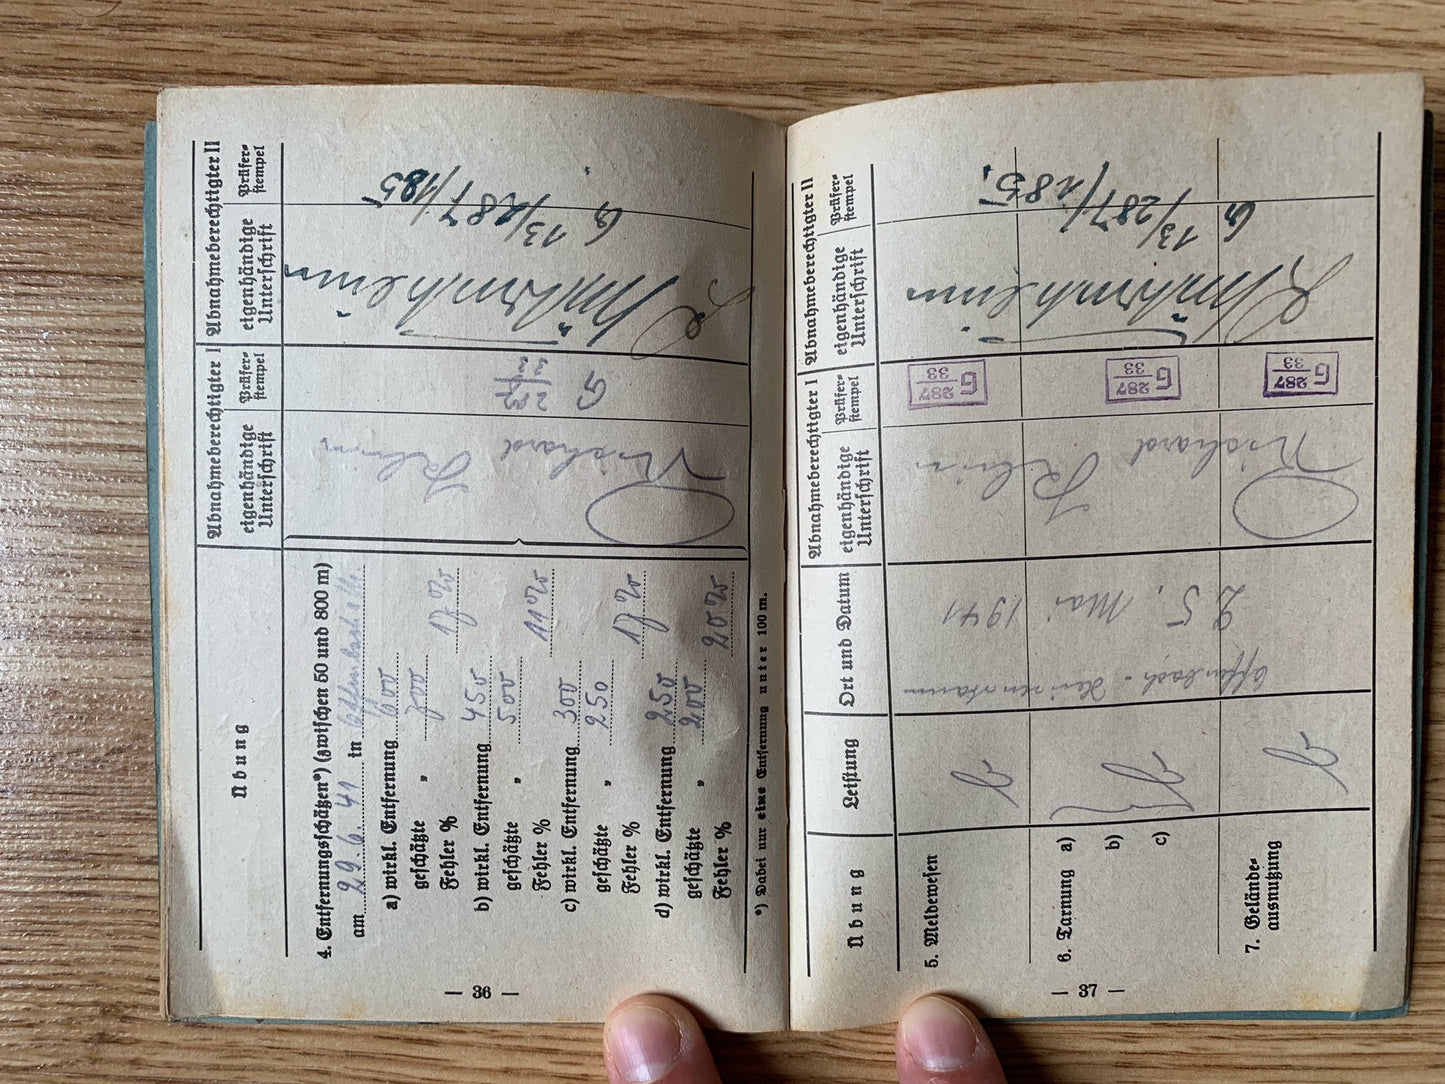 Übung
Abnahmeberechtigter I
Abnahmeberechtigter II
eigenhändige
Unterschrift
Prüfer=
stempel
eigenhändige
Unterschrift
Prüfer=
stempel
4. Entfernungsschätzen*) (zwischen 50 und 800 m)
am 29. 6. 41 in
a) wirkl. Entfernung 600
geschätzte „ 700
Fehler % 17 %
b) wirkl. Entfernung 450
geschätzte „ 500
Fehler % 11 %
c) wirkl. Entfernung 300
geschätzte „ 250
Fehler % 17 %
d) wirkl. Entfernung 250
geschätzte „ 200
Fehler % 20 %
Richard
G
287
G
13/287/185
*) Dabei nur eine Entfernung unter 100 m.
— 36 —
Übung
Leistung
Ort und Datum
Abnahmeberechtigter I
Abnahmeberechtigter II
eigenhändige
Unterschrift
Prüfer=
stempel
eigenhändige
Unterschrift
Prüfer=
stempel
5. Meldewesen
6. Tarnung a)
b)
c)
7. Gelände=
ausnutzung
Offenbach -
25. Mai 1941
Richard
G 287/33
G 287/33
G 287/33
G
13/287/185.
— 37 —